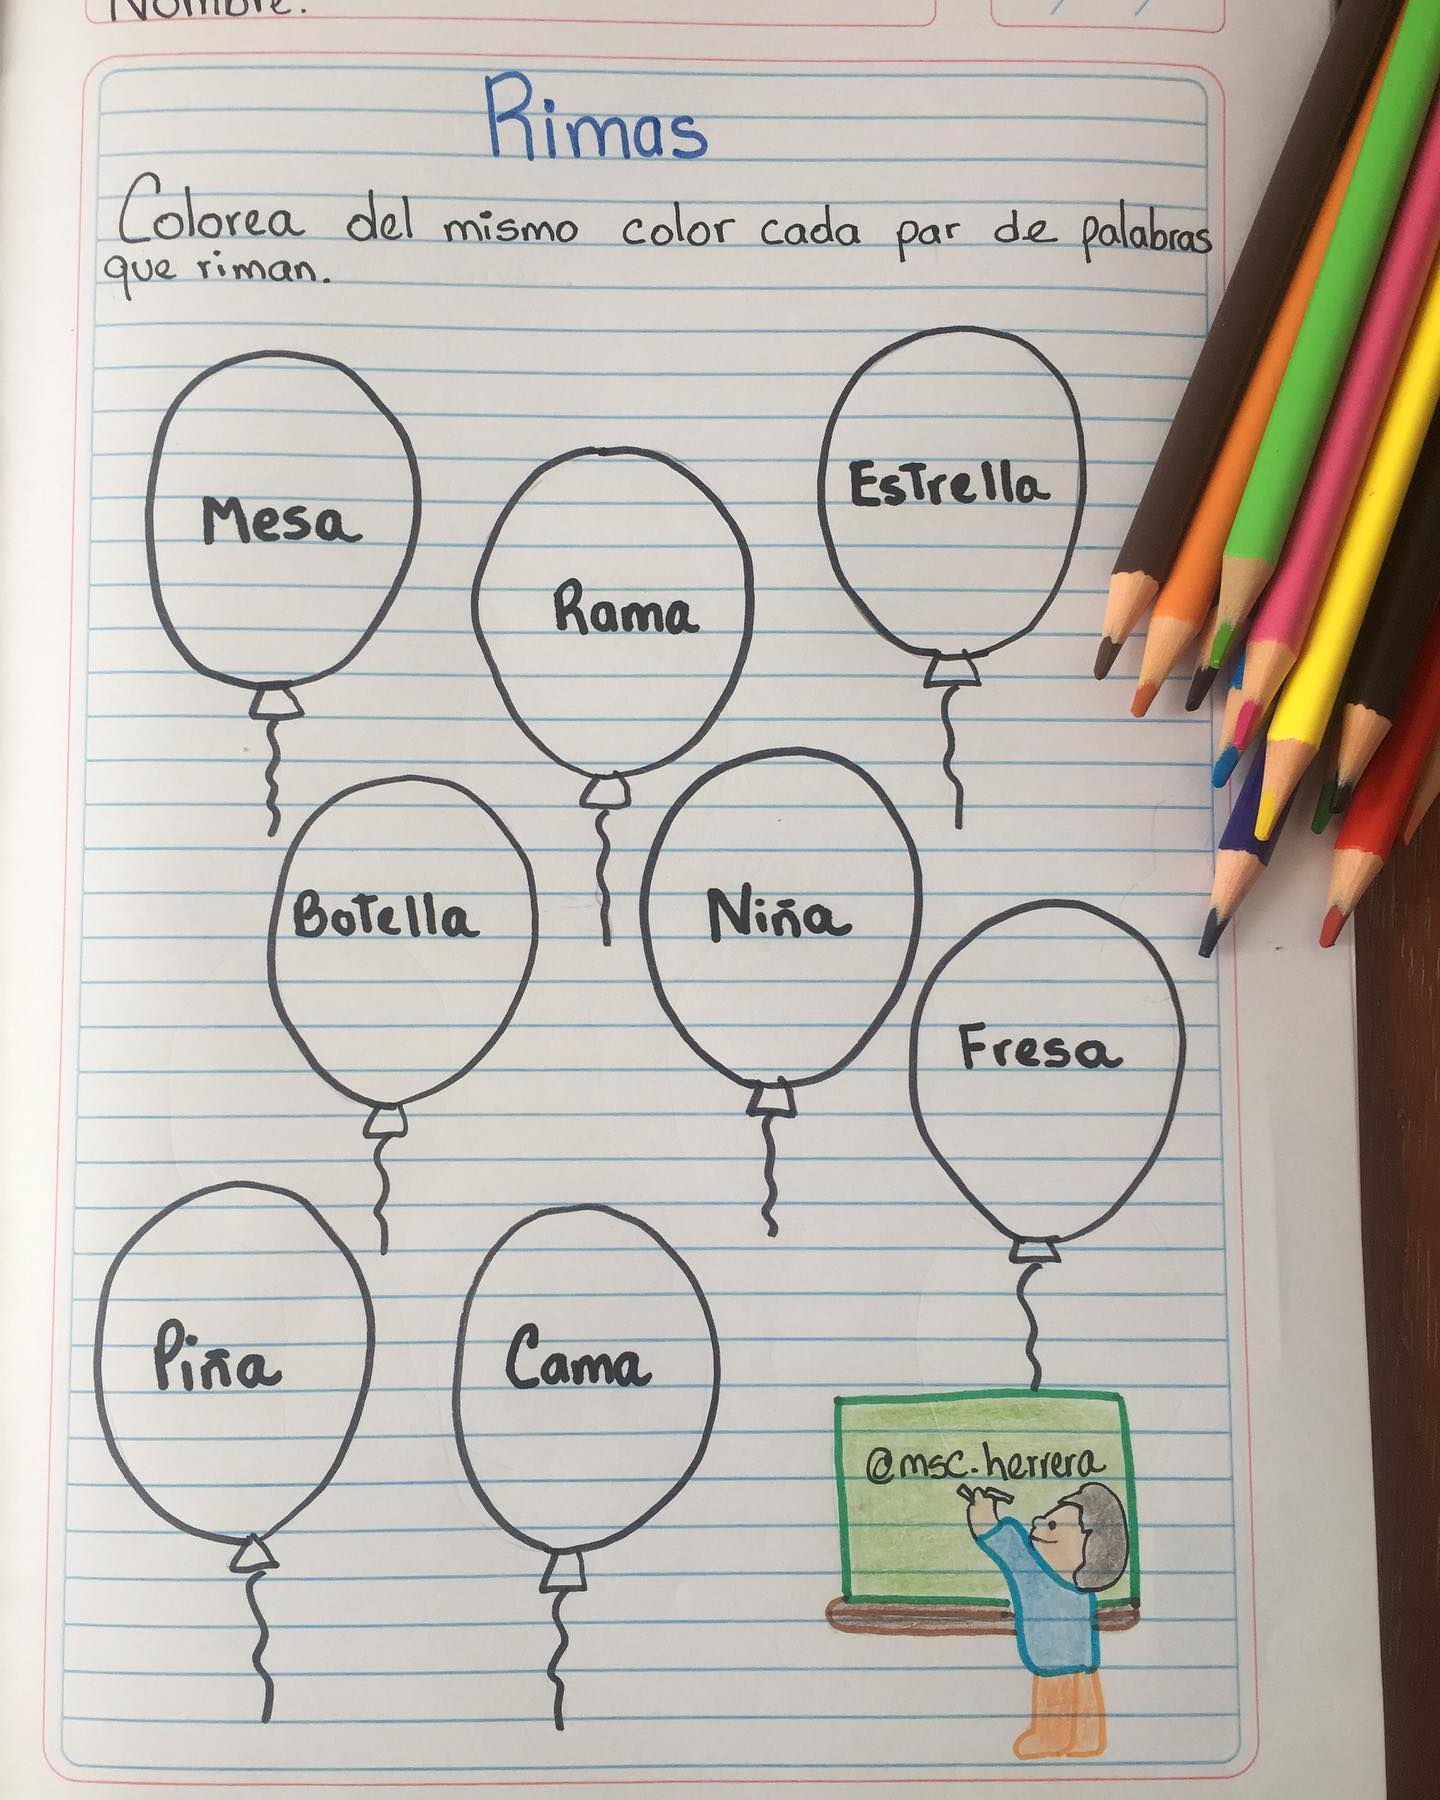 Nombre:
Rimas
Colorea del mismo color cada par de palabras
que riman.
Mesa
Rama
Estrella
Botella
Niña
Fresa
Piña
Cama
@msc.herrera